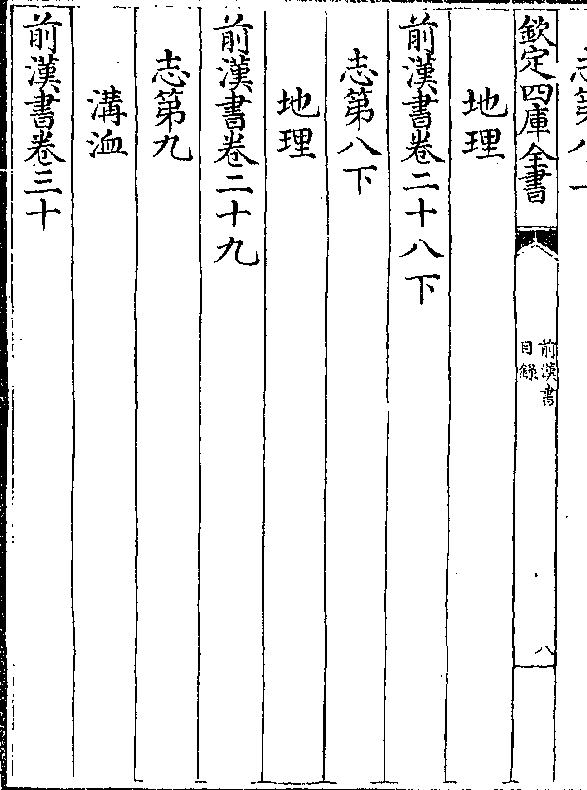 志第八上
欽定四庫全書
前漢書
目錄
八
地理
前漢書卷二十八下
志第八下
地理
前漢書卷二十九
志第九
溝洫
前漢書卷三十